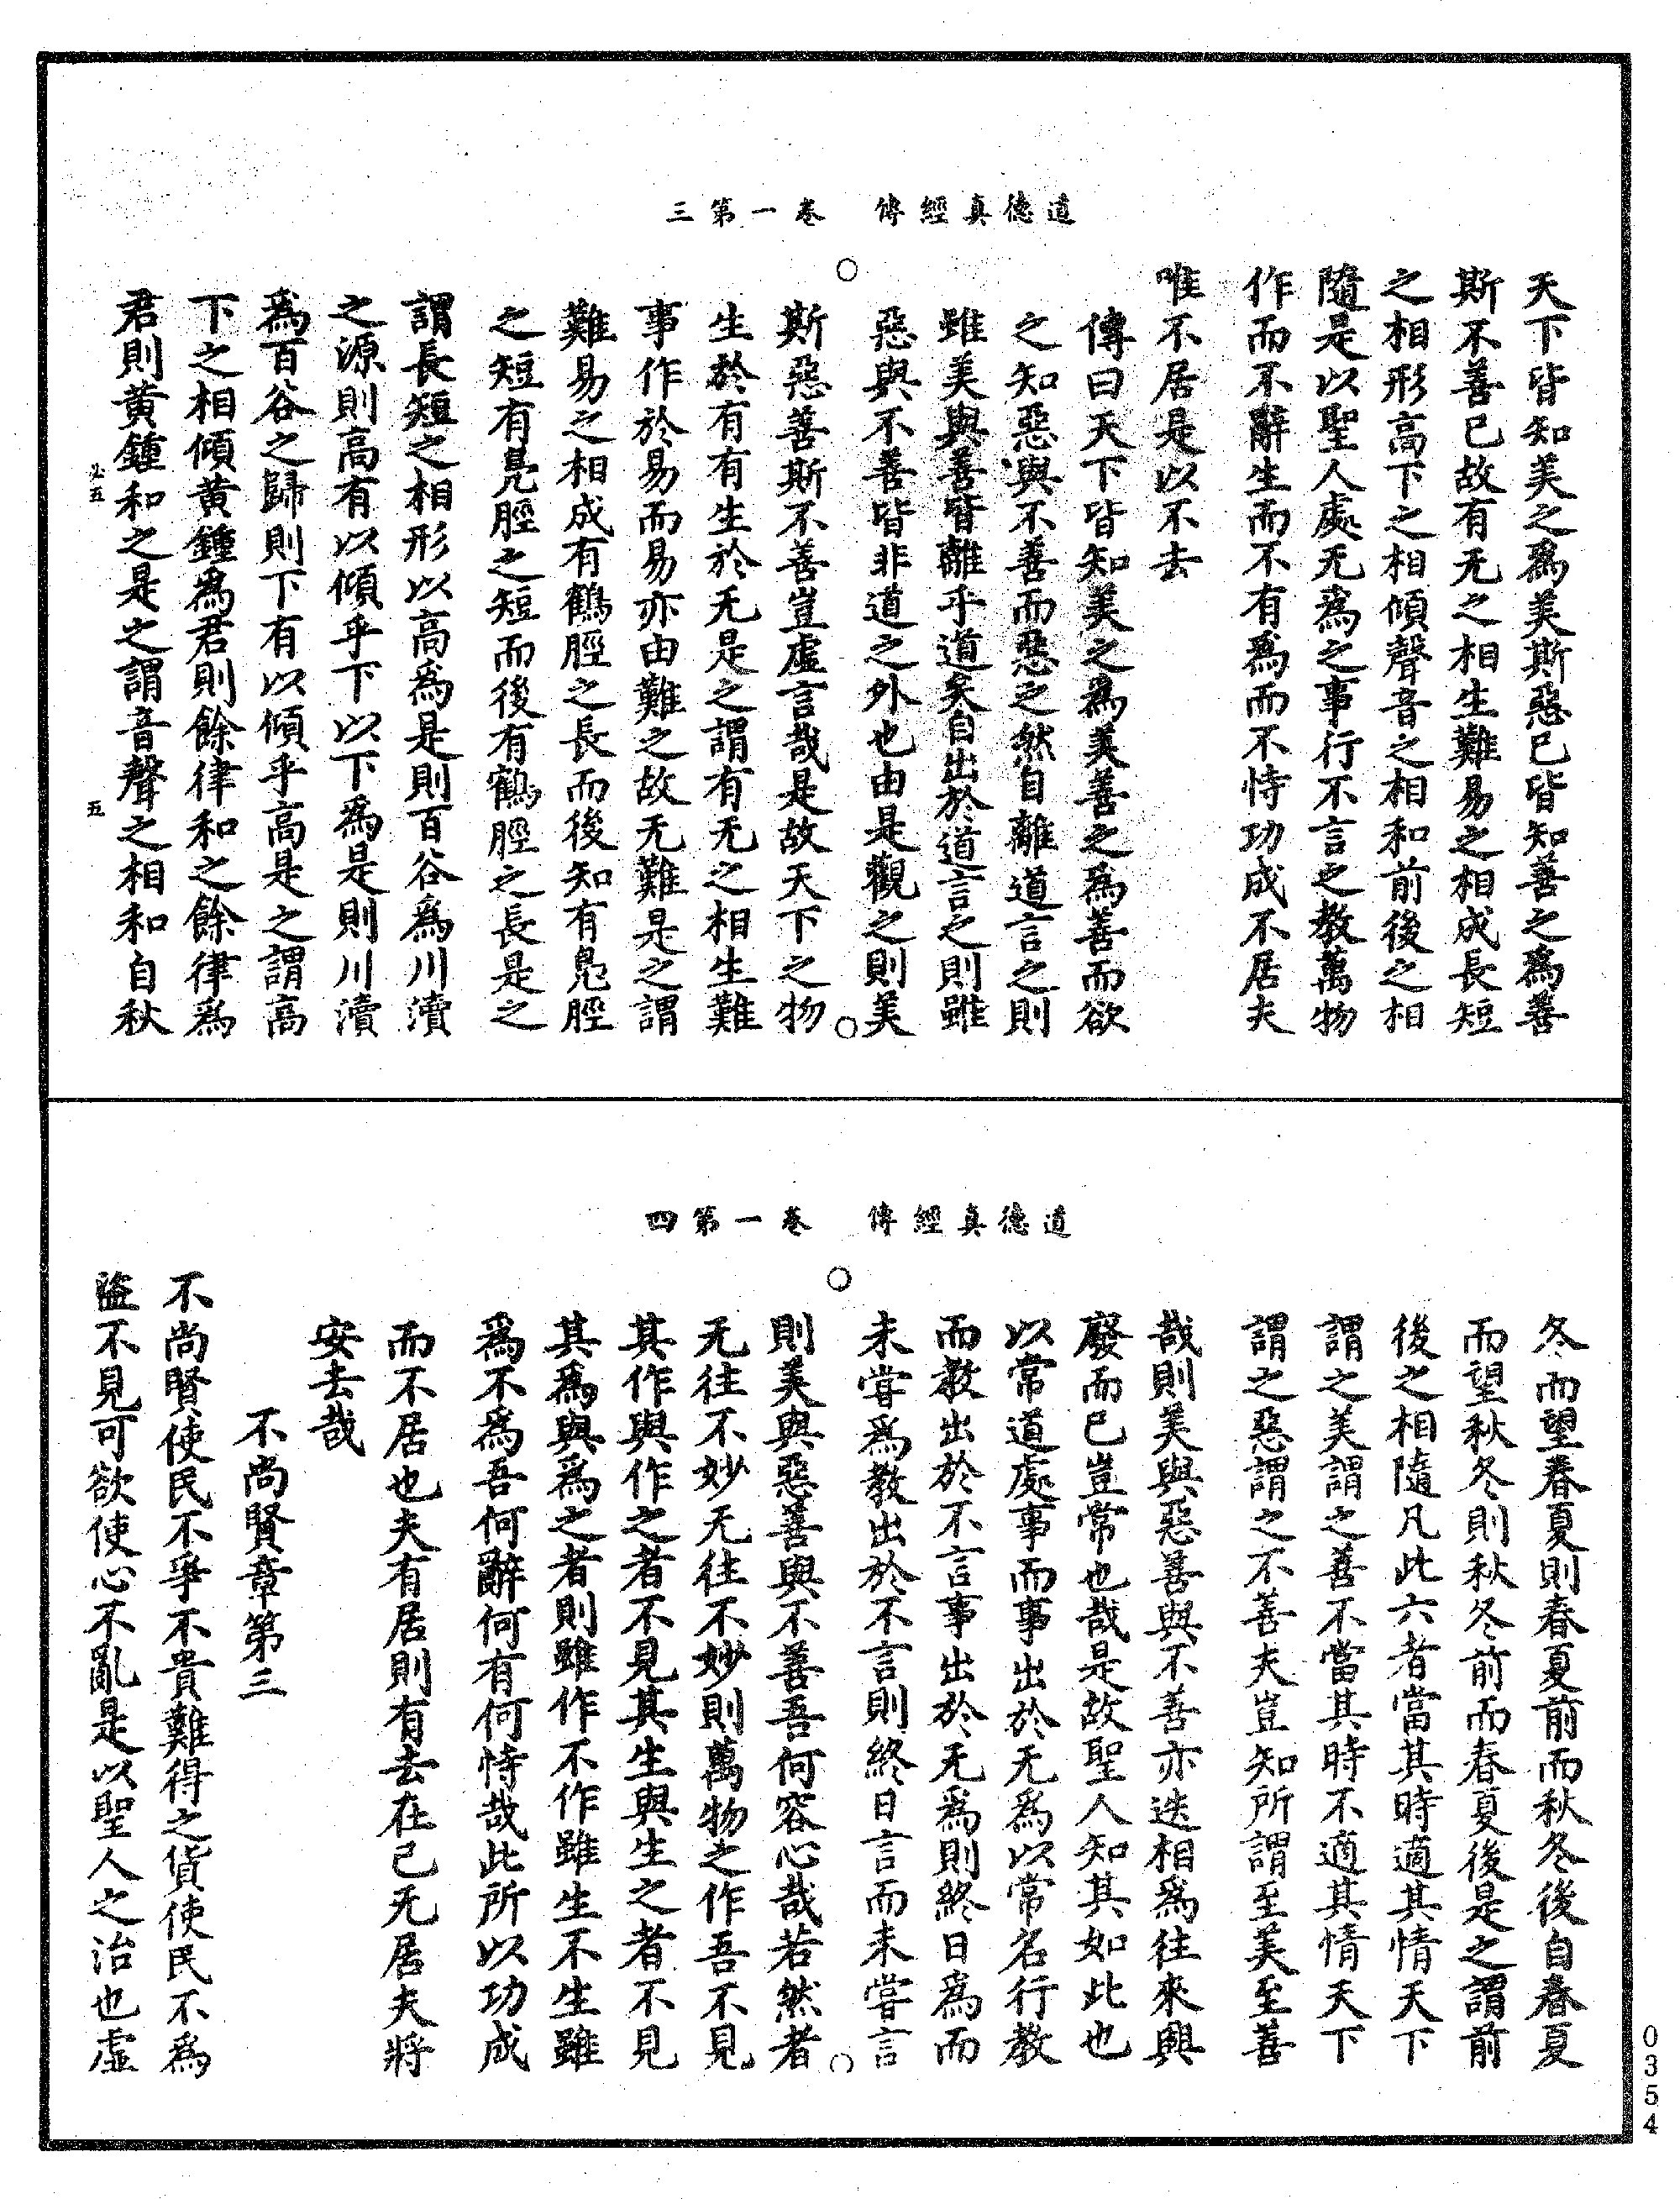 道德真經傳　卷一第三
天下皆知美之爲美斯惡已皆知善之爲善
斯不善已故有无之相生難易之相成長短
之相形高下之相傾聲音之相和前後之相
隨是以聖人處无爲之事行不言之教萬物
作而不辭生而不有爲而不恃功成不居夫
唯不居是以不去
傳曰天下皆知美之爲美善之爲善而欲
之知惡與不善而惡之然自離道言之則
雖美與善皆離乎道矣自出於道言之則雖
惡與不善皆非道之外也由是觀之則美
斯惡善斯不善豈虛言哉是故天下之物
生於有有生於无是之謂有无之相生難
事作於易而易亦由難之故无難是之謂
難易之相成有鶴脛之長而後知有鳧脛
之短有鳧脛之短而後有鶴脛之長是之
謂長短之相形以高爲是則百谷爲川瀆
之源則高有以傾乎下以下爲是則川瀆
爲百谷之歸則下有以傾乎高是之謂高
下之相傾黃鍾爲君則餘律和之餘律爲
君則黃鍾和之是之謂音聲之相和自秋
必五　五
道德真經傳　卷一第四
冬而望春夏則春夏前而秋冬後自春夏
而望秋冬則秋冬前而春夏後是之謂前
後之相隨凡此六者當其時適其情天下
謂之美謂之善不當其時不適其情天下
謂之惡謂之不善夫豈知所謂至美至善
哉則美與惡善與不善亦迭相爲往來興
廢而已豈常也哉是故聖人知其如此也
以常道處事而事出於无爲以常名行教
而教出於不言事出於无爲則終日爲而
未嘗爲教出於不言則終日言而未嘗言
則美與惡善與不善吾何容心哉若然者
无往不妙无往不妙則萬物之作吾不見
其作與作之者不見其生與生之者不見
其爲與爲之者則雖作不作雖生不生雖
爲不爲吾何辭何有何恃哉此所以功成
而不居也夫有居則有去在己无居夫將
安去哉
不尚賢章第三
不尚賢使民不爭不貴難得之貨使民不爲
盜不見可欲使心不亂是以聖人之治也虛
0354